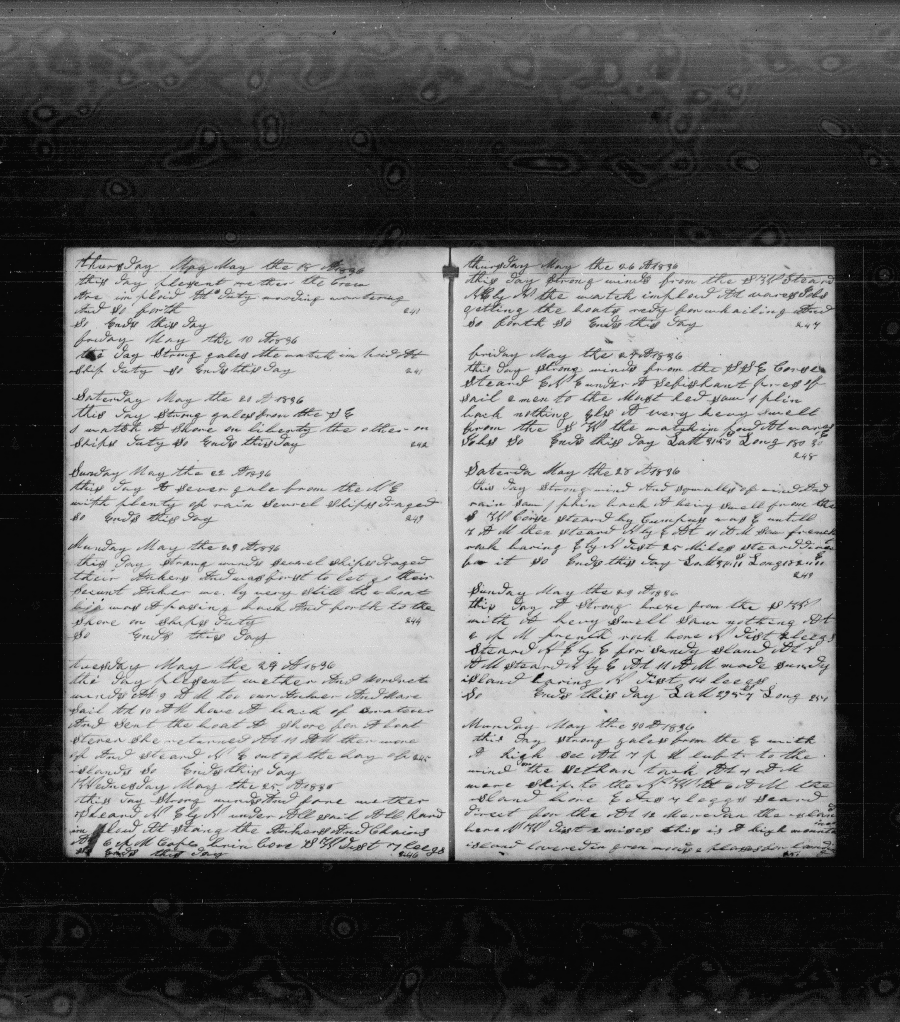 thursday May May the 18 A 1836
this day plesent wether the Crew
Are imploid At duty wooding wortering
And so forth 241
So Ends this day
friday May the 10 A 1836
this day Strong gales the watch imploid At
ship duty So Ends this day 241
Saterday May the 21 A 1836
this day Strong gales from the S E
1 watch A Shore on liberty the other on
ships duty So Ends this day 242
Sunday May the 22 A 1836
this day A sever gale from the N E
with plenty of rain severel ships draged
So Ends this day 243
Munday May the 23 A 1836
this day strong winds severel ships draged
their Ankers And was forst to let go their
secunt Anker we ly very still the boat
was A passing back And forth to the
Shore on ships duty 244
So Ends this day
tuesday May the 24 A 1836
the day plesent wether And
winds At 9 A M toc our Anker And Mare
sail At 10 A M hove A back of
And sent the boat A shore for A boat
sterer she returned At 11 A M then wore
And steard N E out of the Bay of
islands So Ends this day
Wednesday May the 25 A 1836
this day strong winds And fare wether
steard N Ely N under All sail All hand
imploid At stoing the Ankers And Chains
At 6 P M Cape bore S W Dist 7 leegs
So Ends this day 246
thursday May the 26 A 1836
this day strong winds from the S W Steard
N Ely N the watch imploid At vares Jobs
getting the boats redy for whailing And
So forth So Ends this day 247
friday May the 27 A 1836
this day strong winds from the S S E Corse
Steard E N E under A Sefishant pres of
sail 2 men to the Mast hed saw 1 phin
back nothing Els A very hevy swell
from the S W the watch imploid At vares
Jobs So Ends this day Latt 31 50 Long 180 30
248
Saterda May the 28 A 1836
this day Strong wind And squalls of wind And
rain saw 1 phin back A hevy swell from the
S W Corse steard by Cumpass E untill
7 A M then steard N by E At 11 A M Saw french
rock baring Ely N Dist 25 Miles steard
for it So Ends this day Latt Long
249
Sunday May the 29 A 1836
this day A Strong breze from the S W
with A hevy swell Saw nothing At
6 P M french rock bore N Dist 2 leegs
Steard N E by E for Sundy island At 7
A M steard N by E At 11 A M made sundy
island baring N Dist 14 leegs
So Ends this day Latt 29 57 Long 250
Munday May the 30 A 1836
this day strong gales from the E with
A high see At 7 P M lufr to the
wind on the Sethan tack At 4 A M
wore ship to the N W At 6 A M the
island bore E 7 leggs steard
direct for the At 12 Meredan the island
bore N W Dist 2 miles this is A high mountin
island
251